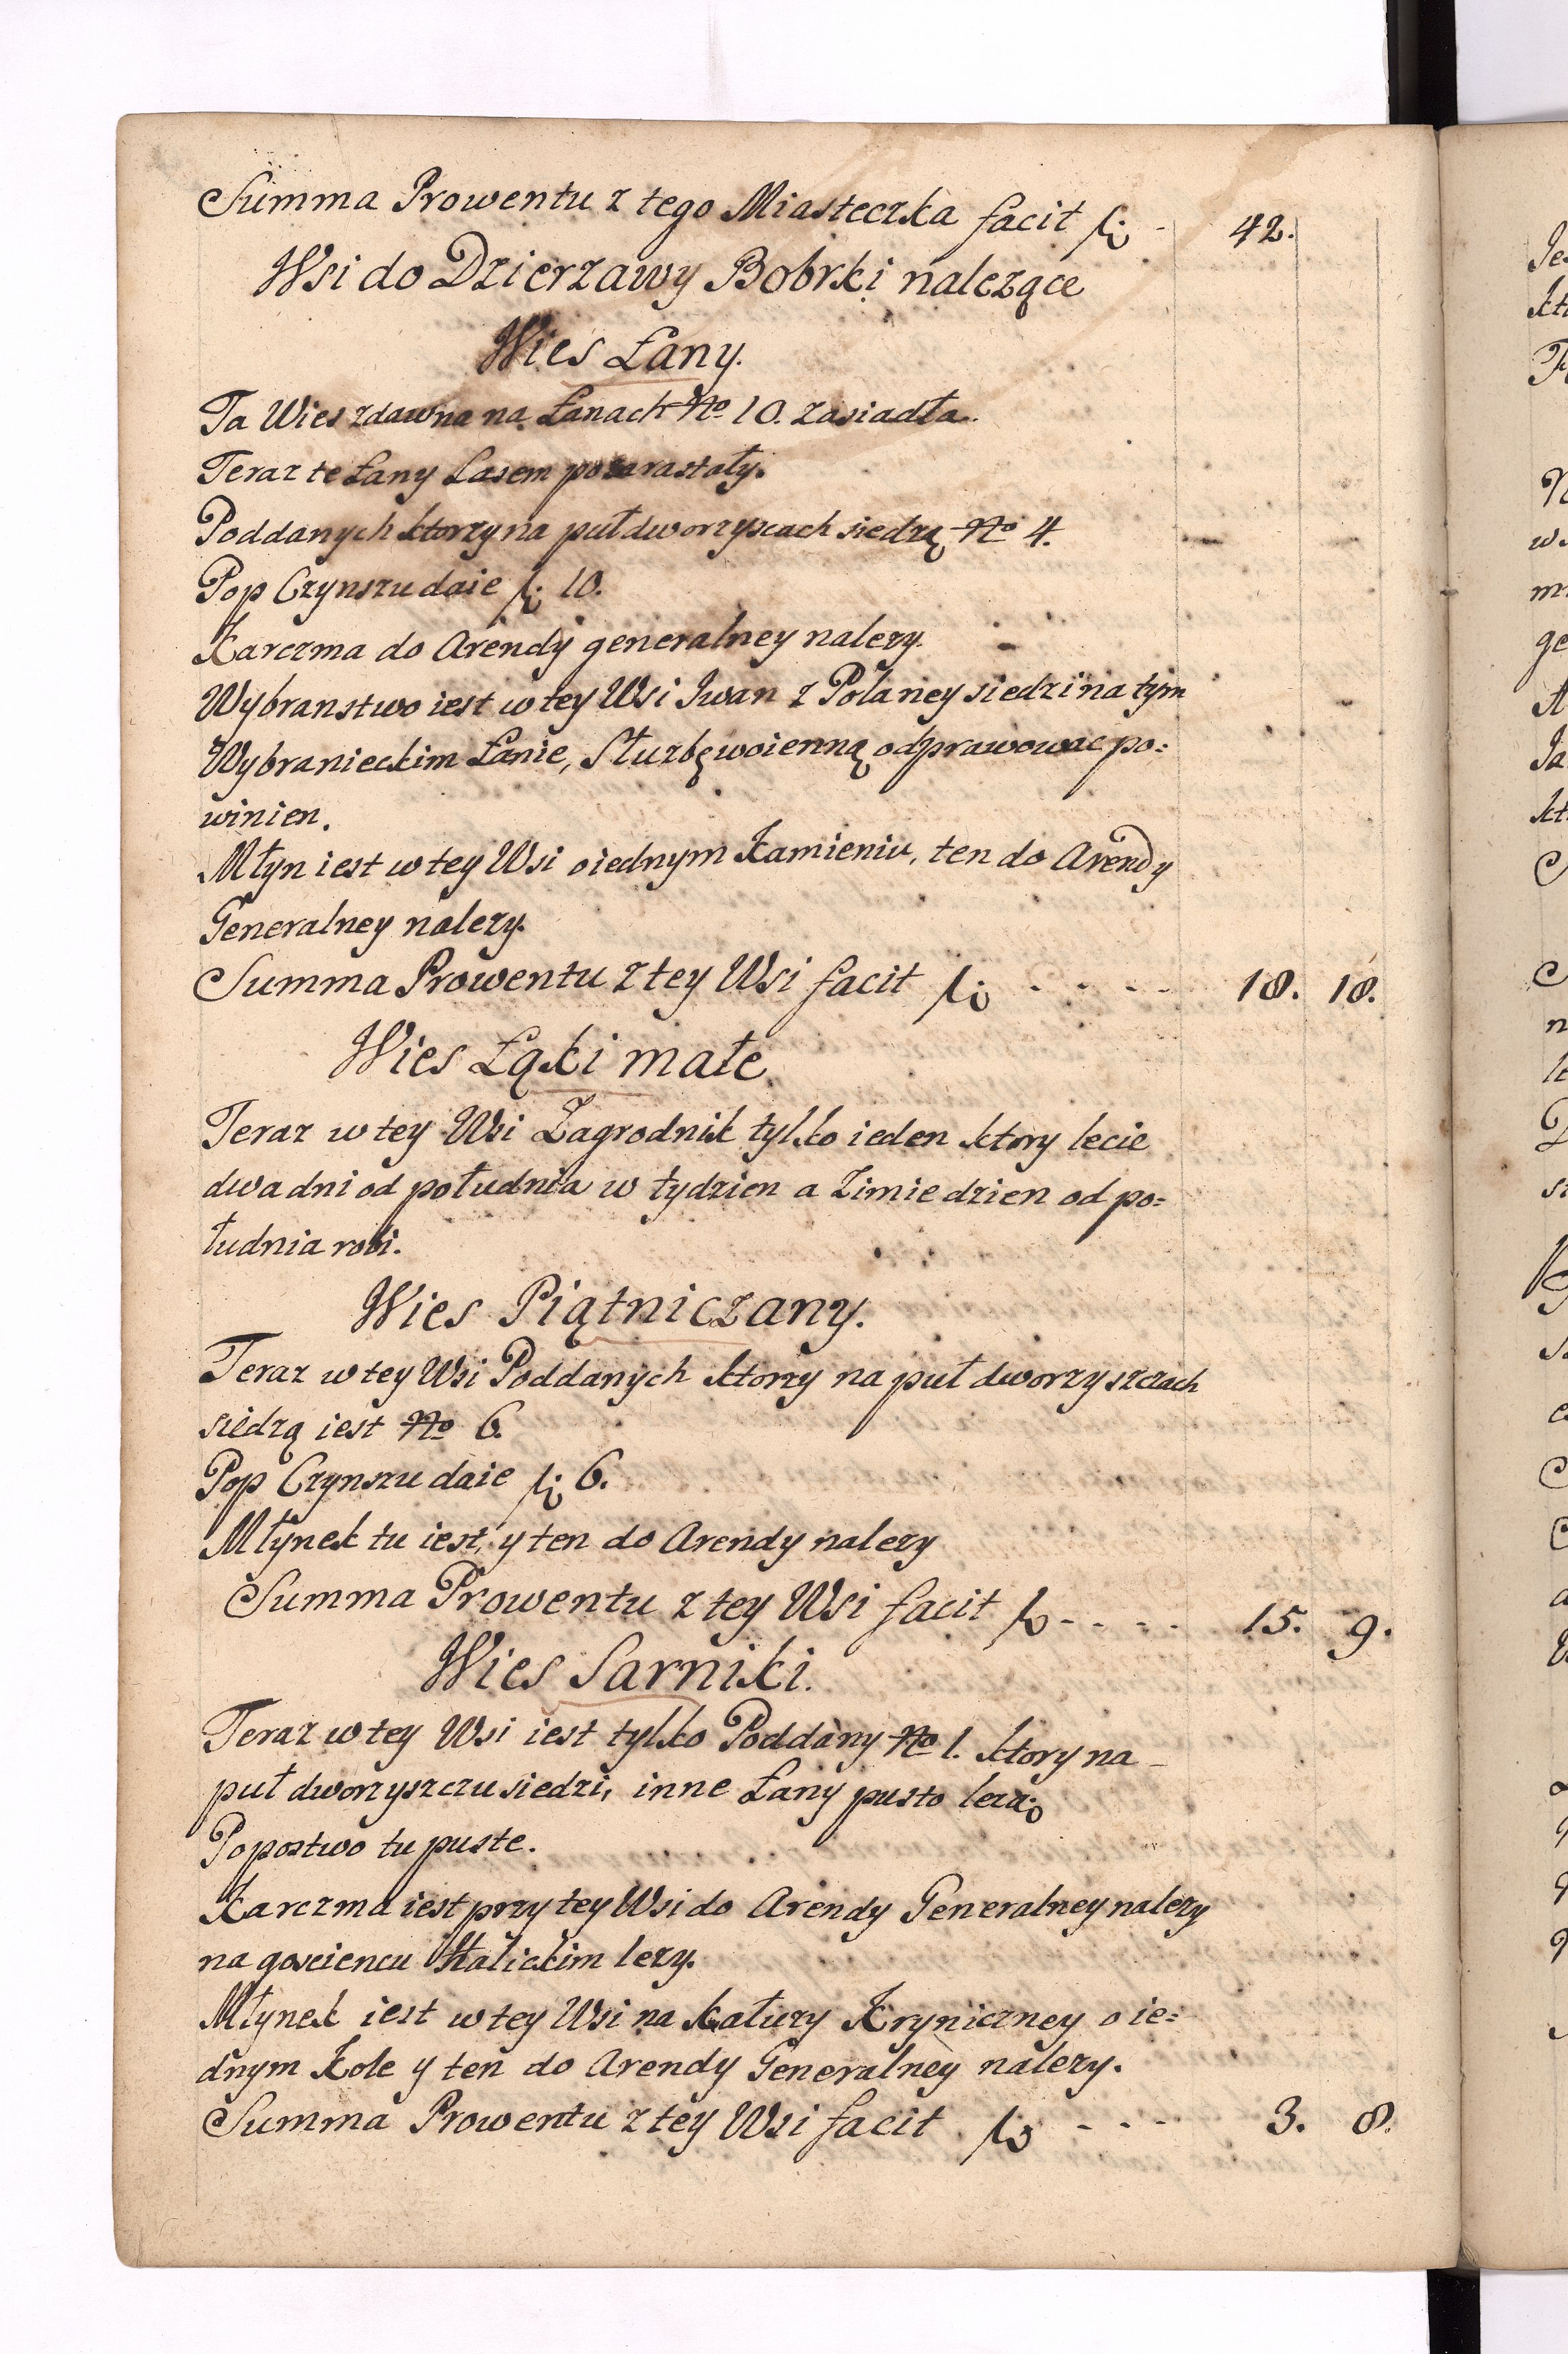 Summa Prowentu z tego Miasteczka facit fl: - 42.
Wsi do Dzierzawy Bobrki nalezące
Wies Łany.
Ta Wies zdawna na Łanach No 10. zasiadła.
Teraz te Łany Lasem pozarastały.
Poddanych ktorzy na puł dworzyscach siedzą No 4.
Pop Czynszu daie fl: 10.
Karczma do Arendy generalney nalezy.
Wybranstwo iest w tey Wsi Iwan z Polaney siedzi na tym
Wybranieckim Łanie, Służbę woienną odprawowac po=
winien.
Młyn iest w tey Wsi o iednym Kamieniu, ten do Arendy
Generalney nalezy.
Summa Prowentu z tey Wsi facit fl: - - - - 18. 18.
Wies Łąki małe
Teraz w tey Wsi Zagrodnik tylko ieden ktory lecie
dwa dni od południa w tydzien a Zimie dzien od po=
łudnia robi.
Wies Piątniczany.
Teraz w tey Wsi Poddanych ktorzy na puł dworzyszczach
siedzą iest No 6.
Pop Czynszu daie fl: 6.
Młynek tu iest, y ten do Arendy nalezy
Summa Prowentu z tey Wsi facit fl - - - - 15. 9.
Wies Sarniki.
Teraz w tey Wsi iest tylko Poddany No 1. ktory na
puł dworzyszczu siedzi, inne Łany pusto lezą
Popostwo tu puste.
Karczma iest przy tey Wsi do Arendy Generalney nalezy
na goscincu Halickim lezy.
Młynek iest w tey Wsi na Kałuzy Kryniczney o ie=
dnym Kole y ten do Arendy Generalney nalezy.
Summa Prowentu z tey Wsi facit fl - - - 3. 8.